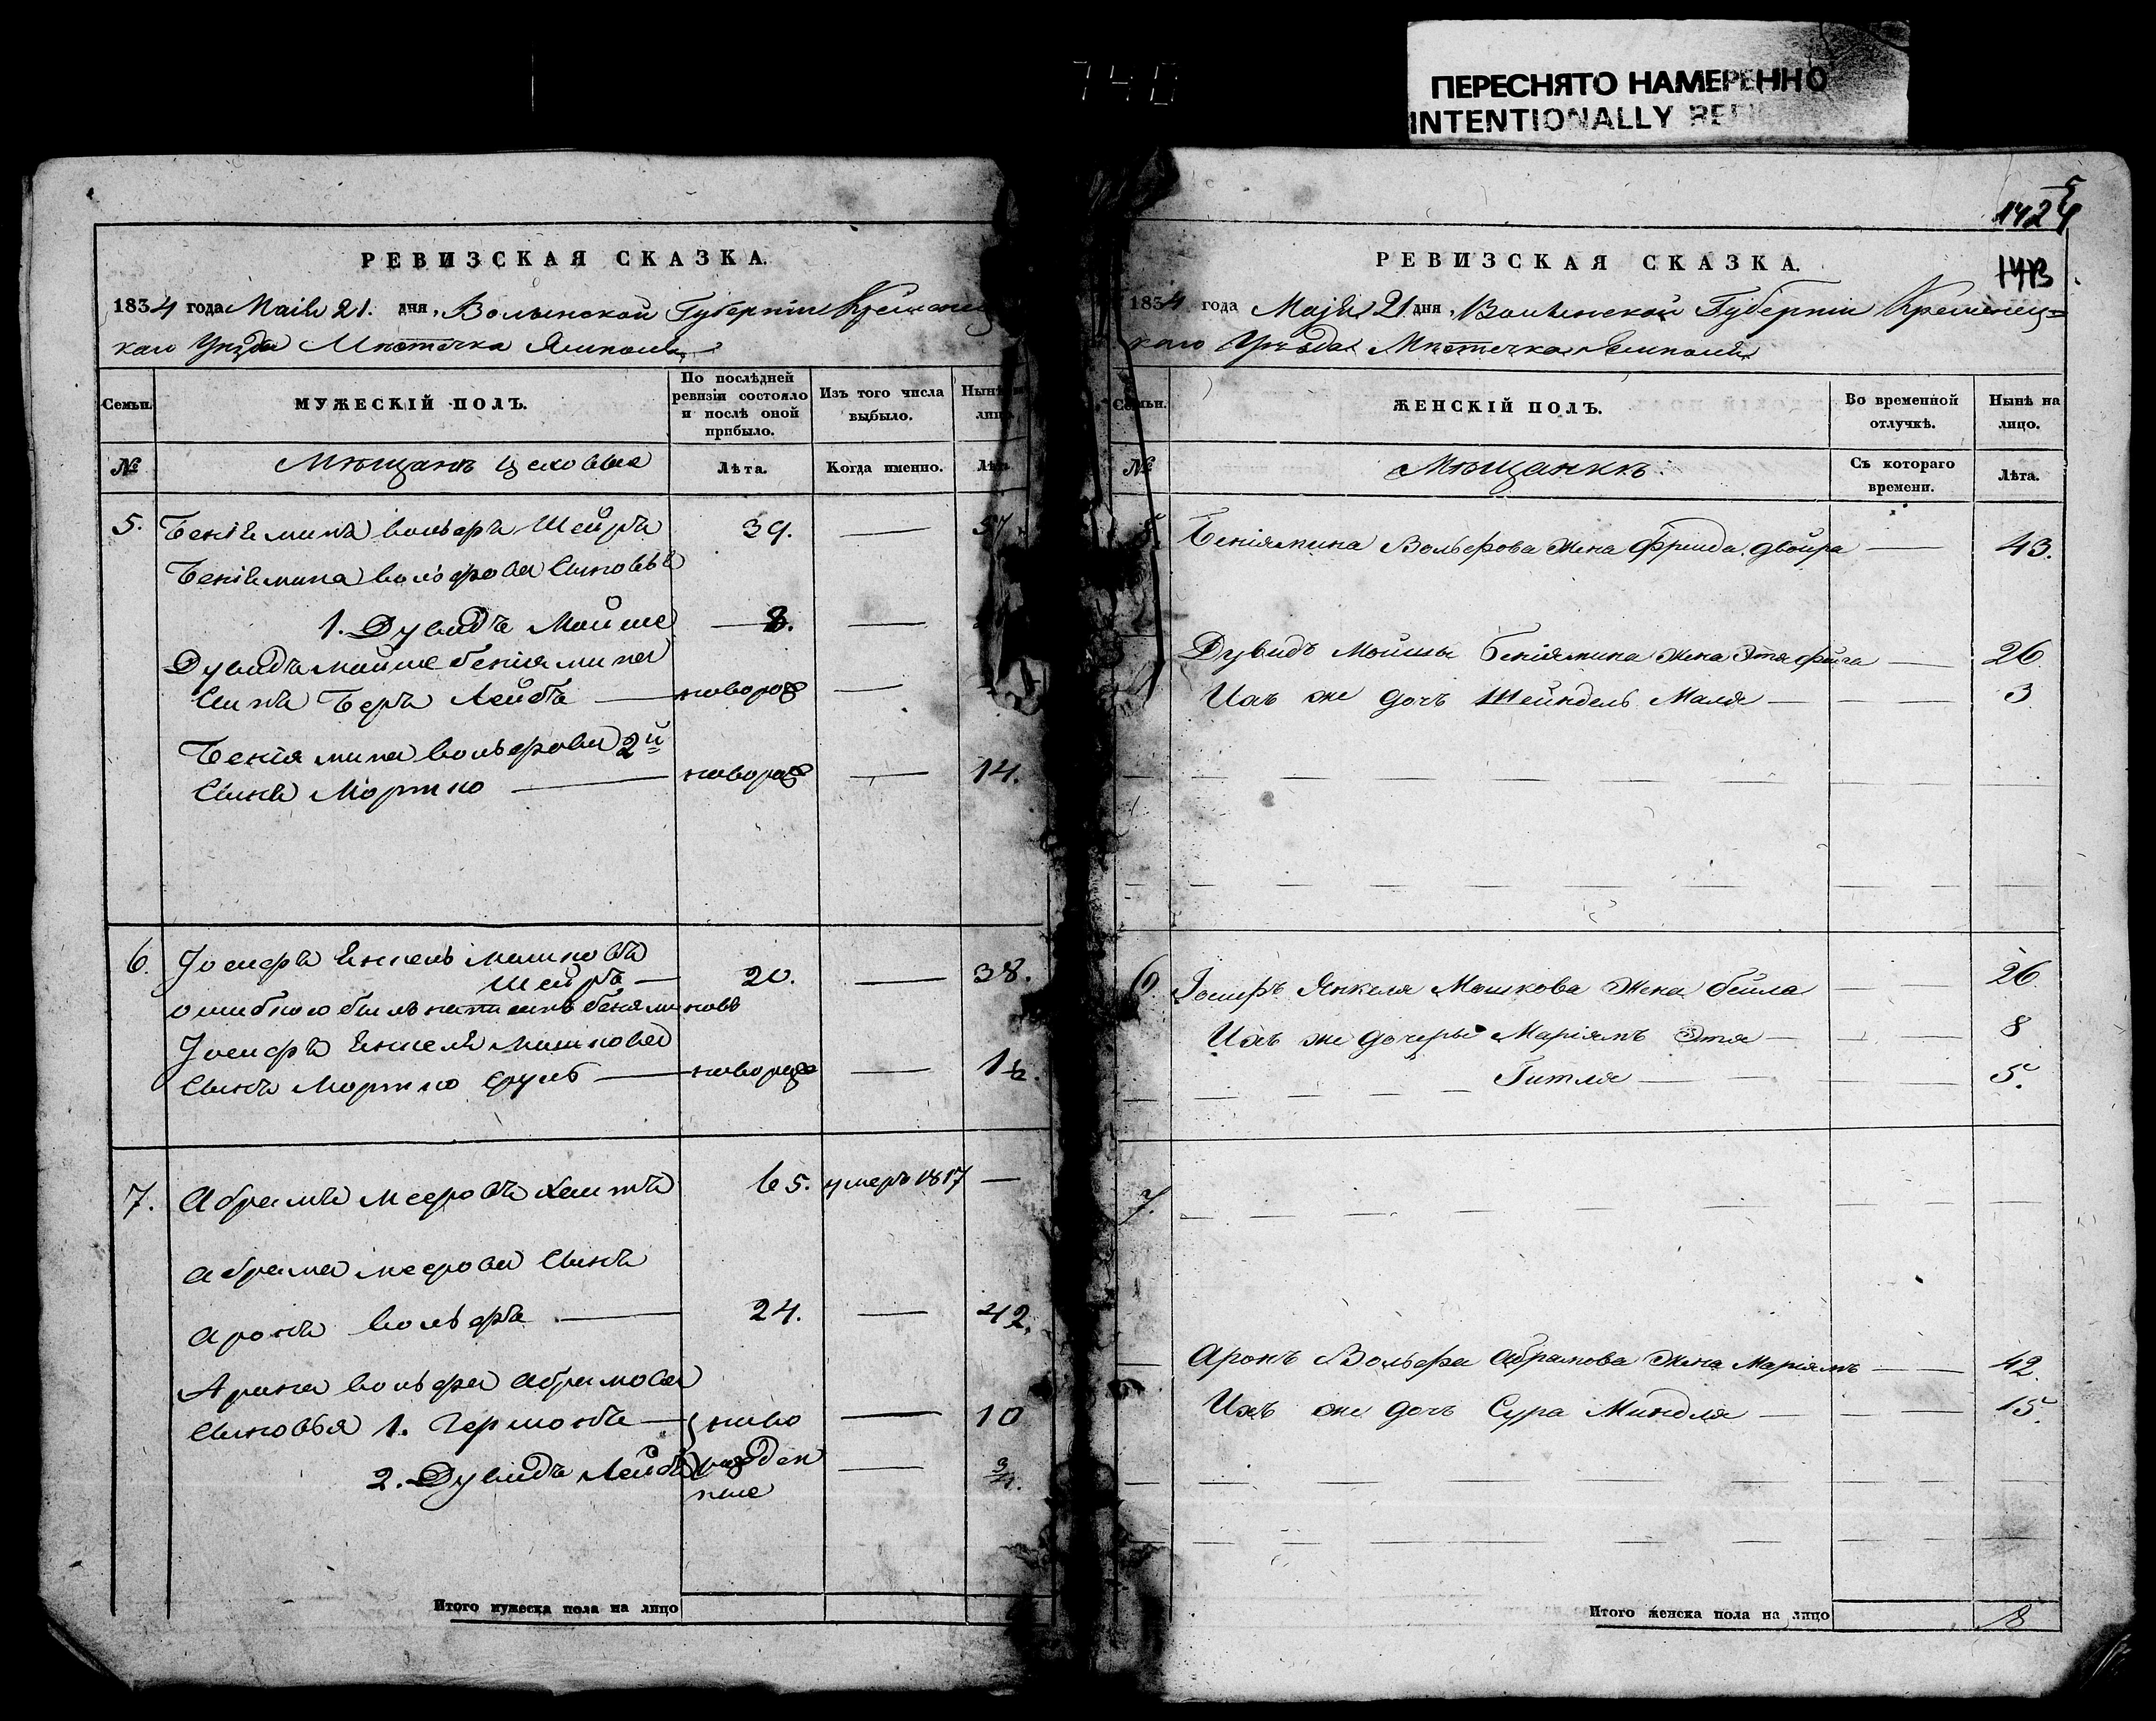 740
ПЕРЕСНЯТО НАМЕРЕННО
INTENTIONALLY
РЕВИЗСКАЯ СКАЗКА.
1834 года Маія 21. дня, Волынской Губерніи Кременец
каго Уѣзда Мѣстечка Ямполя
Семьи.
МУЖЕСКІЙ ПОЛЪ.
По послѣдней ревизіи состояло и послѣ оной прибыло.
Изъ того числа выбыло.
Нынѣ на лицо.
№
Мѣщанъ цеховые
Лѣта.
Когда именно.
Лѣта
5. Беніяминъ Вольфъ Шейръ 39. — 57
Беніямина Вольфова Сыновья
1. Дувидъ Мойше — 8. —
Дувидъ Мойше Беніямина
Сынъ Беръ Лейбъ — новорож —
Беніямина Вольфова 2й
Сынъ Мортко — новорож — 14.
6. Іосифъ Янкель Мошковъ
Шейръ — 20. — 38.
ошибкою былъ
Іосифа Янкеля Мошкова
Сынъ Мортко Сруль — новорож —
7. Абрамъ Мееровъ 65. умеръ 1817 —
Абрама Меерова Сынъ
Аронъ Вольфъ — 24. — 42.
Арона Вольфа Абрамова
Сыновья 1. Гермонъ — ново — 10
2. Дувидъ Лейбъ рожден — 3/4.
ные
Итого мужеска пола на лицо
5
1424
1413
РЕВИЗСКАЯ СКАЗКА.
1834 года Маія 21 дня, Волынской Губерніи Кременец=
каго Уѣзда Мѣстечка Ямполя
Семьи.
ЖЕНСКІЙ ПОЛЪ.
Во временной отлучкѣ.
Нынѣ на лицо.
№
Мѣщанкъ.
Съ котораго времени.
Лѣта.
5. Беніямина Вольфова жена Фрида Двойра — 43.
Дувидъ Мойшы Беніямина жена Этя Фейга — 26
Ихъ же дочь Шейндель Маля — — — 3
6. Іосифъ Янкеля Мошкова жена Бейла — 26
Ихъ же дочеры Маріямъ Этя — — — 8
Гитля — — — 5.
7.
Аронъ Вольфа Абрамова жена Маріямъ — 42.
Ихъ же дочь Сура Миндля — — — 15.
Итого женска пола на лицо 8